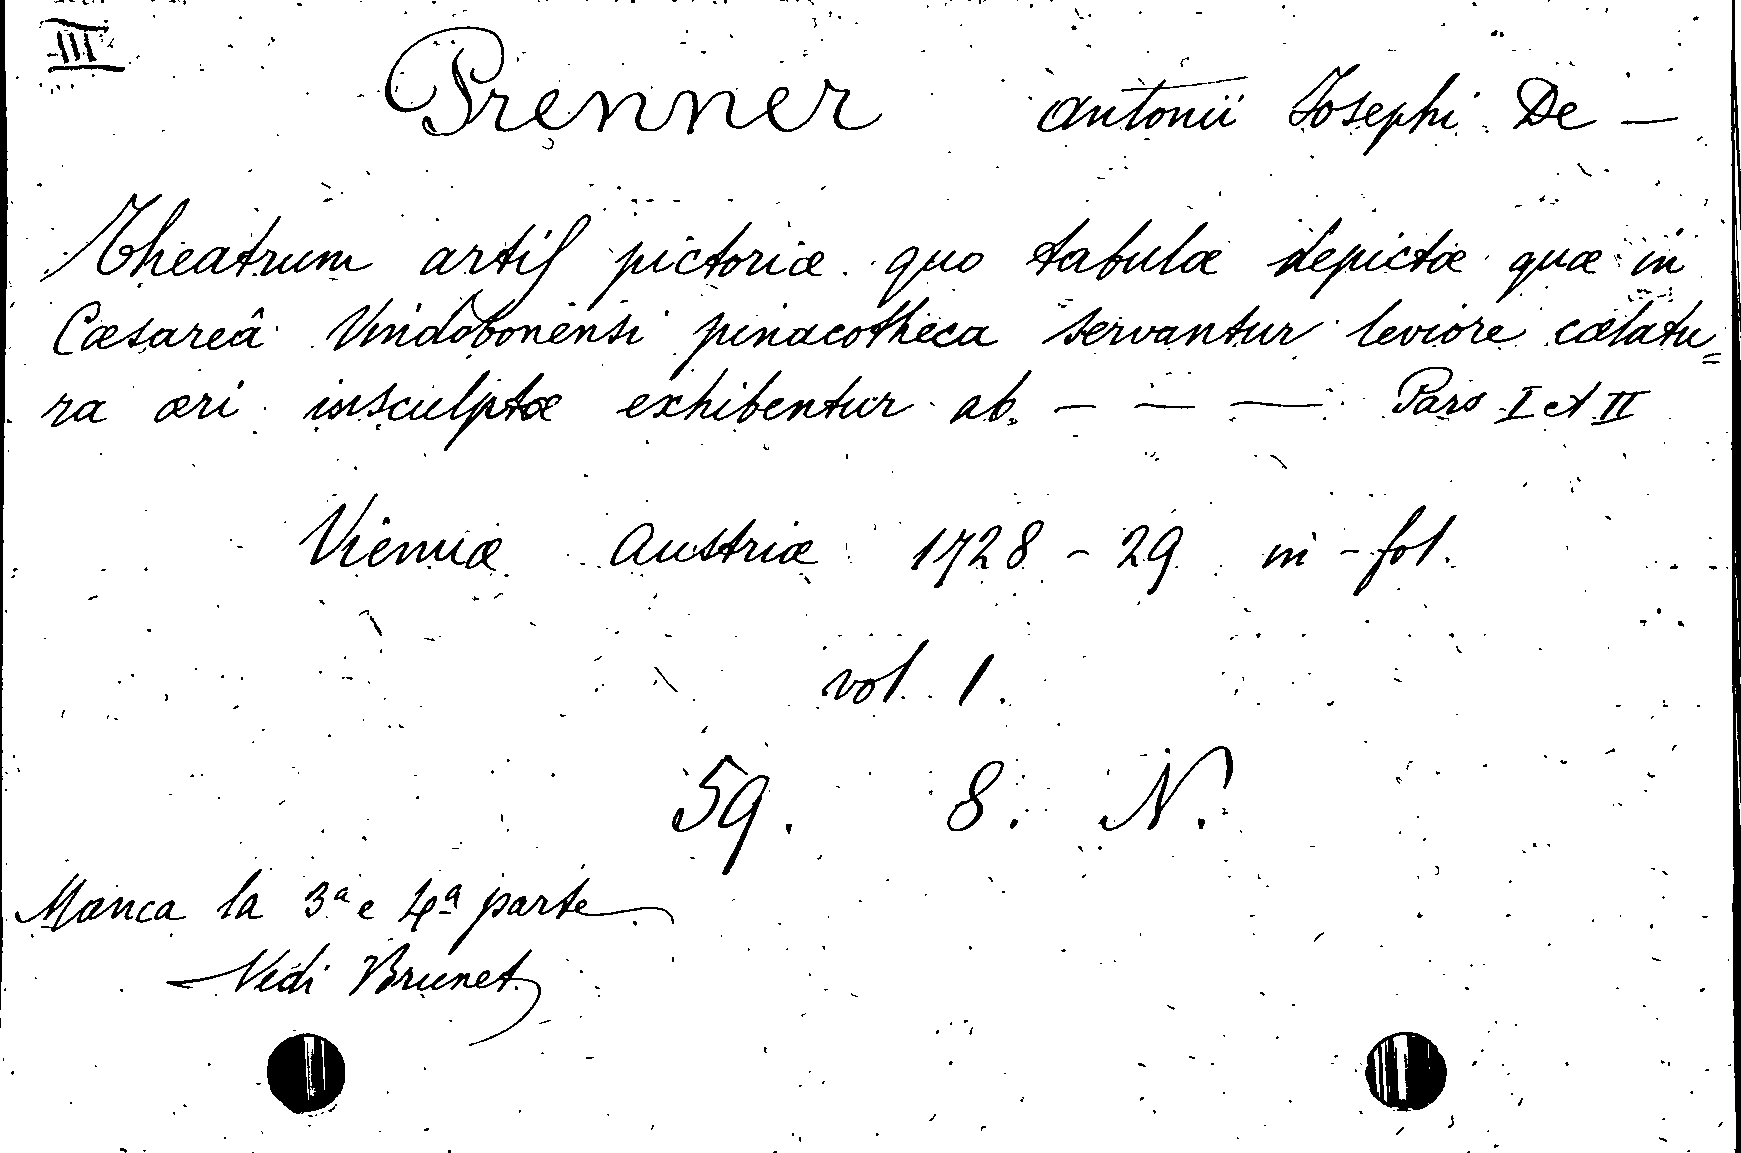 III
Prenner Antonii Josephi De —
Theatrum artis pictoriæ quo tabulæ depictæ quæ in
Cæsareâ Vindobonensi pinacotheca servantur leviore cælatu=
ra æri insculptæ exhibentur ab. — — — Pars I et II
Viennæ Austriæ 1728 - 29 in-fol.
vol. 1.
59. 8. N.
Manca la 3ª e 4ª parte
Vedi Brunet